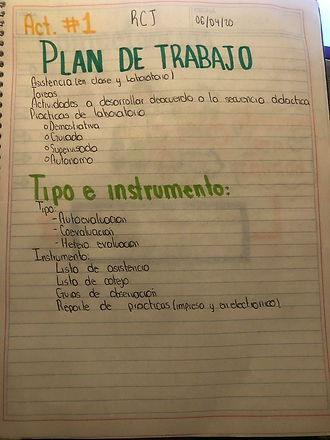 Act. #1
RCJ
06/04/20
PLAN DE TRABAJO
Asistencia (en clase y Laboratorio)
Tareas
Actividades a desarrollar deacuerdo a la secuencia didactica
Practicas de laboratorio
Demostrativa
Guiada
Supervisada
Autonomo
Tipo e instrumento:
Tipo:
- Autoevaluacion
- Coevaluacion
- Hetero evaluacion
Instrumento:
Lista de asistencia
Lista de cotejo
Guias de observacion
Reporte de practicas (impreso y en electronico)